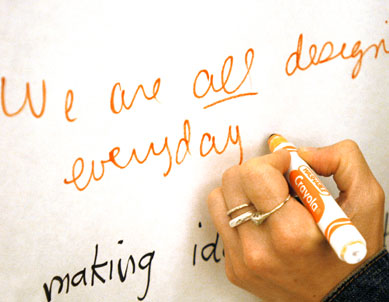 We are all design
everyday
making id
Crayola